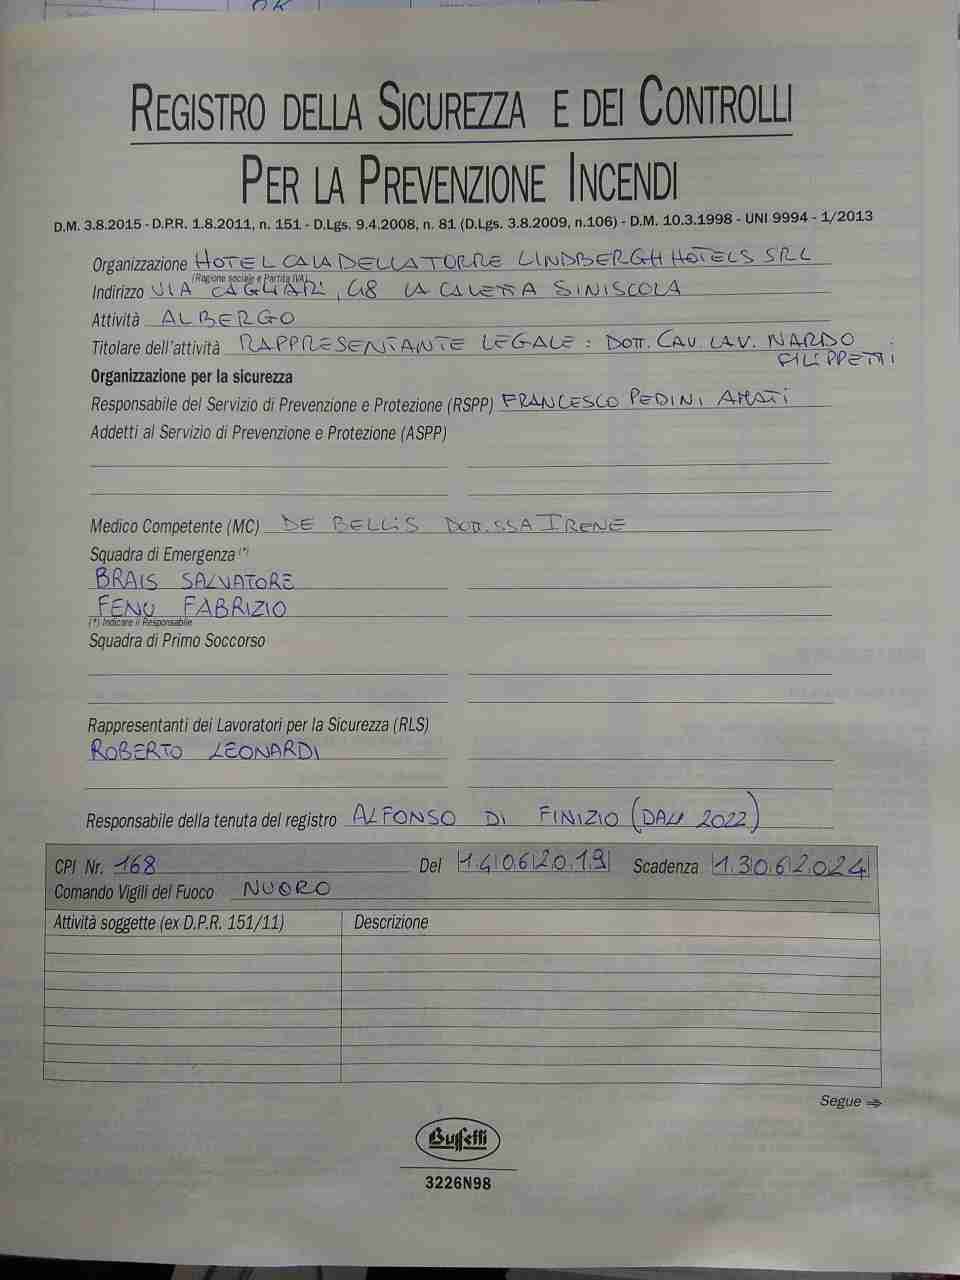 OK
REGISTRO DELLA SICUREZZA E DEI CONTROLLI
PER LA PREVENZIONE INCENDI
D.M. 3.8.2015 - D.P.R. 1.8.2011, n. 151 - D.Lgs. 9.4.2008, n. 81 (D.Lgs. 3.8.2009, n.106) - D.M. 10.3.1998 - UNI 9994 - 1/2013
Organizzazione HOTEL CALA DELLA TORRE LINDBERGH HOTELS SRL
(Ragione sociale e Partita IVA)
Indirizzo VIA CAGLIARI, 48 LA CALETTA SINISCOLA
Attività ALBERGO
Titolare dell'attività RAPPRESENTANTE LEGALE: DOTT. CAV. LAV. NARDO
FILIPPETTI
Organizzazione per la sicurezza
Responsabile del Servizio di Prevenzione e Protezione (RSPP) FRANCESCO PEDINI AMATI
Addetti al Servizio di Prevenzione e Protezione (ASPP)
Medico Competente (MC) DE BELLIS DOTT.SSA IRENE
Squadra di Emergenza (*)
BRAIS SALVATORE
FENU FABRIZIO
(*) Indicare il Responsabile
Squadra di Primo Soccorso
Rappresentanti dei Lavoratori per la Sicurezza (RLS)
ROBERTO LEONARDI
Responsabile della tenuta del registro ALFONSO DI FINIZIO (DAL 2022)
CPI Nr. 168 Del 14062019 Scadenza 13062024
Comando Vigili del Fuoco NUORO
Attività soggette (ex D.P.R. 151/11) Descrizione
Segue ⇒
Buffetti
3226N98